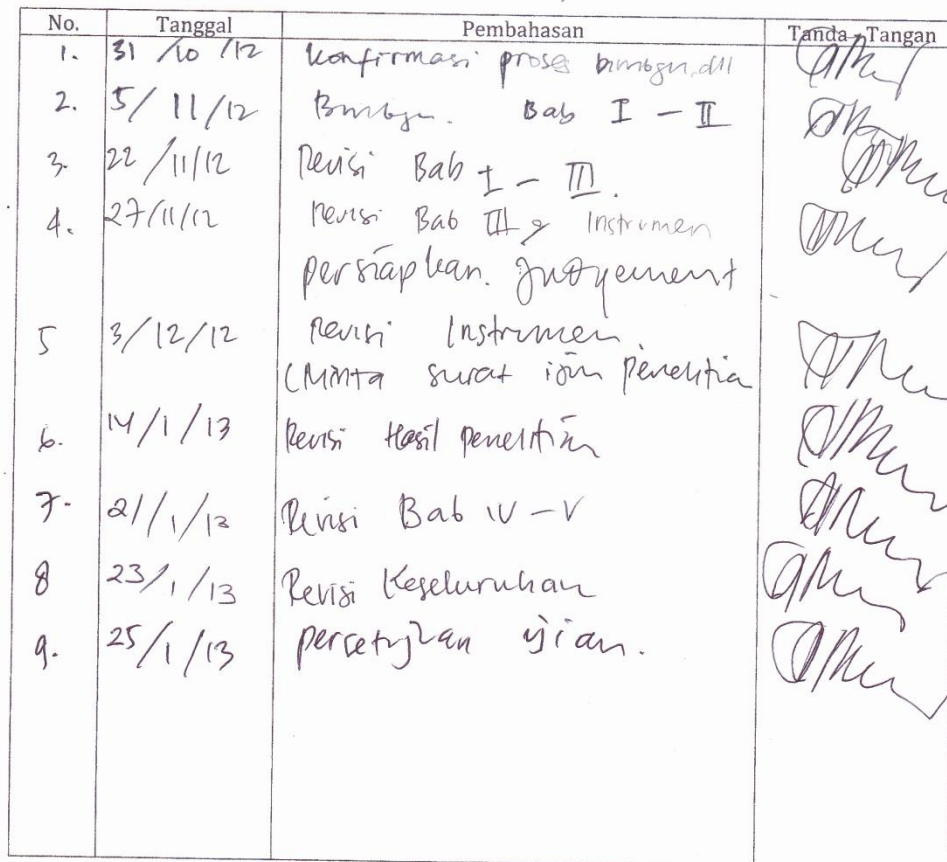 No. Tanggal Pembahasan Tanda Tangan
1. 31/10/12 Konfirmasi proses bimbgn, dll
2. 5/11/12 Bimbgn. Bab I - II
3. 22/11/12 Revisi Bab I - III.
4. 27/11/12 Revisi Bab III & Instrumen
persiapkan. Judgement
5 3/12/12 Revisi Instrumen.
(Minta surat izin Penelitia
6. 14/1/13 Revisi Hasil penelitian
7. 21/1/13 Revisi Bab IV - V
8 23/1/13 Revisi Keseluruhan
9. 25/1/13 persetujuan ujian.